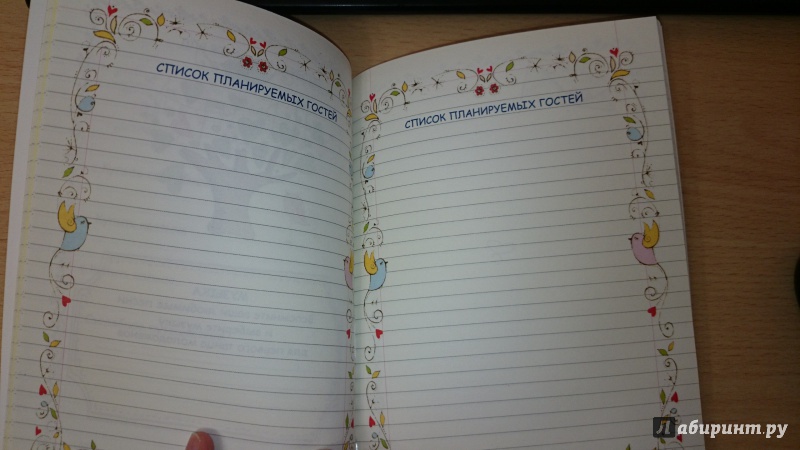 СПИСОК ПЛАНИРУЕМЫХ ГОСТЕЙ
СПИСОК ПЛАНИРУЕМЫХ ГОСТЕЙ
Лабиринт.ру